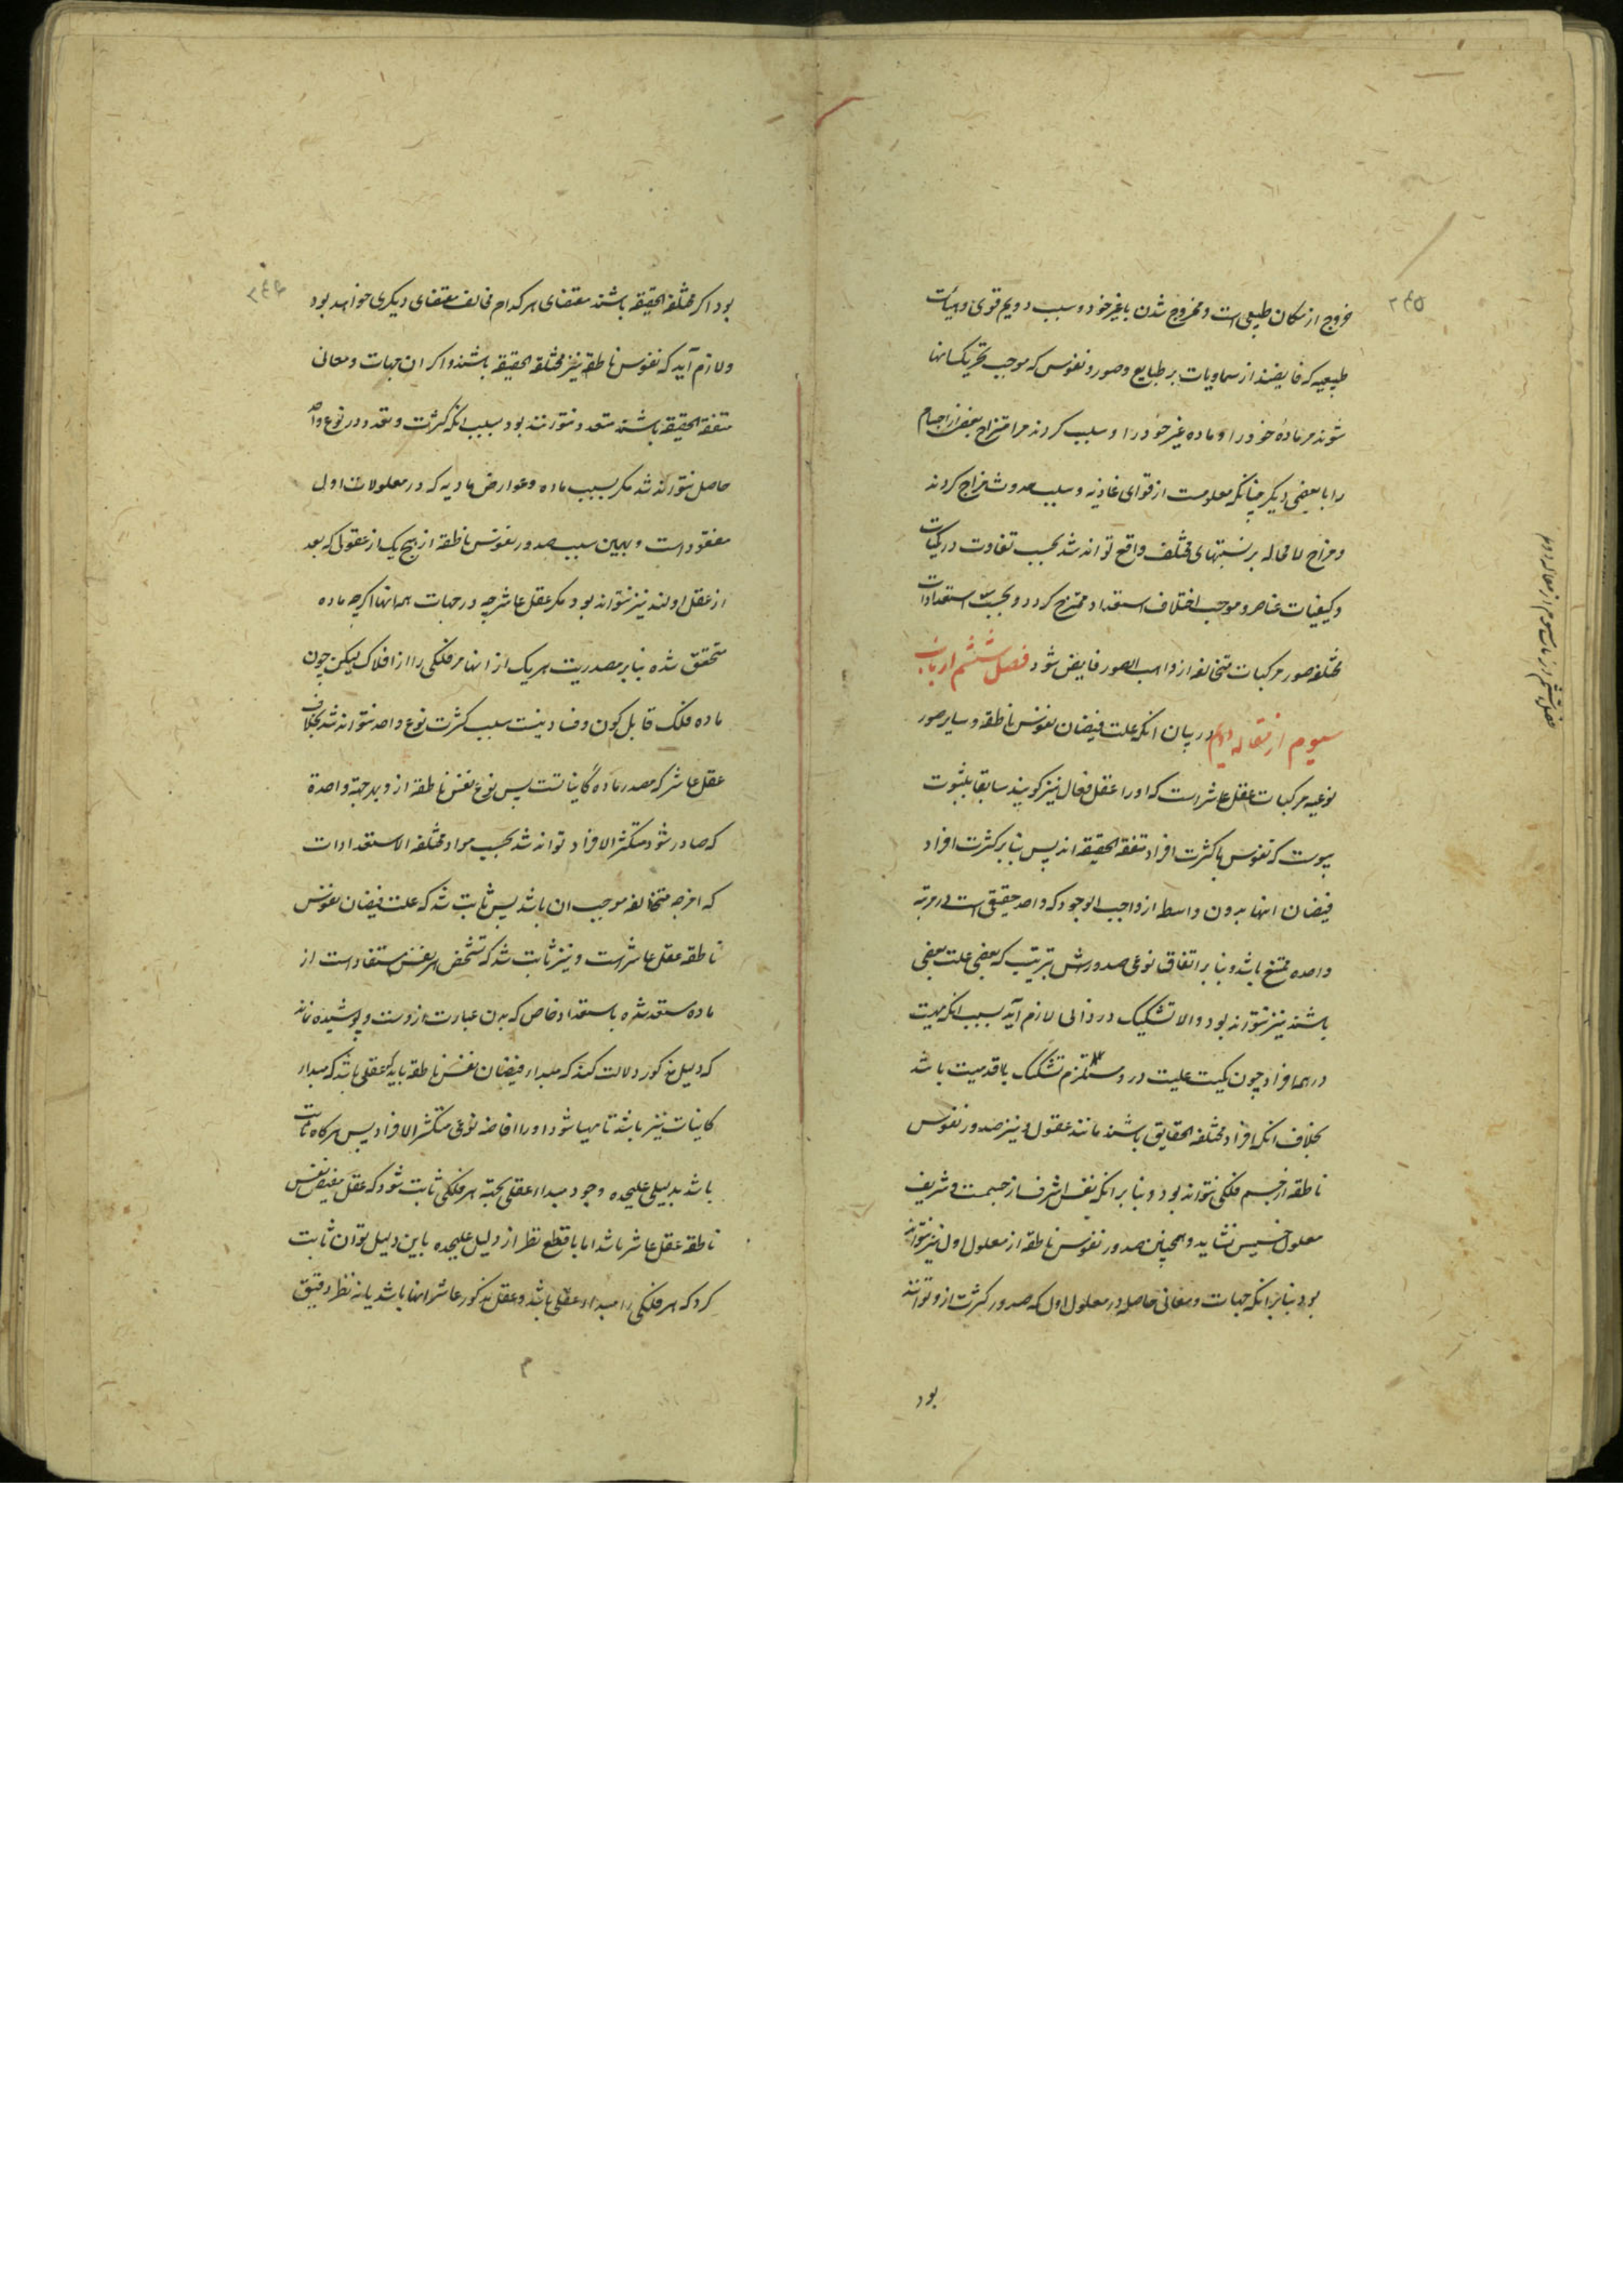 ۲۴۵
خروج از مکان طبیعی است و ممزوج شدن با غیر خود و سبب دویم قوی و هیآت
طبیعیه که فایضند از سماویات بر طبایع و صور و نفوس که موجب تحریک اینها
شوند مر مادهٔ خود را و ماده غیر خود را و سبب کردند مر امتزاج بعض از اجسام
را با بعضی دیگر چنانکه معلومست از قوای غاذیه و سبب حدوث مزاج کردند
و مزاج لا محاله بر نسبتهای مختلف واقع تواند شد بحسب تفاوت در کمیات
و کیفیات عناصر و موجب اختلاف استعداد ممتزج کردد و بحسب استعدادات
مختلفه صور مرکبات متخالفه از واهب الصور فایض شود فصل ششم از باب
سیوم از مقاله دویم در بیان انکه علت فیضان نفوس ناطقه و سایر صور
نوعیه مرکبات عقل عاشر است که او را عقل فعال نیز کویند سابقا بثبوت
پیوست که نفوس با کثرت افراد متفقة الحقیقه اند پس بنا بر کثرت افراد
فیضان اینها بدون واسطه از واجب الوجود که واحد حقیقی است در مرتبه
واحده ممتنع باشد و بنا بر اتفاق نوعی صدورش بترتیب که بعضی علت بعضی
باشند نیز نتواند بود والا تشکیک در ذاتی لازم آید بسبب انکه مهیت
در همه افراد چون یکیست علیت در و مستلزم تشکیک باقدمیت باشد
بخلاف انکه افراد مختلفه الحقایق باشند مانند عقول و نیز صدور نفوس
ناطقه از جسم فلکی نتواند بود و بنا بر انکه نفس اشرف از جسمست و شریف
معلول خسیس نشاید و همچنین صدور نفوس ناطقه از معلول اول نیز نتواند
بود بنا بر انکه جهات و معانی حاصله در معلول اول که صدور کثرت از و توانند
بود
فصل ششم از باب سیوم از مقاله دویم
۲۴۶
بود اکر مختلفة الحقیقه باشند مقتضای هر کدام مخالف مقتضای دیکری خواهد بود
و لازم آید که نفوس ناطقه نیز مختلفة الحقیقه باشند و اکر ان جهات و معانی
متفقة الحقیقه باشند متعدد نتوانند بود بسبب انکه کثرت و تعدد در نوع واحد
حاصل نتواند شد مکر بسبب ماده و عوارض مادیه که در معلولات اولی
مفقود است و بهمین سبب صدور نفوس ناطقه از هیچ یک از عقولی که بعد
از عقل اولند نیز نتواند بود مکر عقل عاشر چه در جهات همه اینها اکرچه ماده
متحقق شده بنا بر مصدریت هر یک از اینها مر فلکی را از افلاک لیکن چون
ماده فلک قابل کون و فساد نیست سبب کثرت نوع واحد نتواند شد بخلاف
عقل عاشر که مصدر مادهٔ کایناتست پس نوع نفس ناطقه از و بجهة واحدة
که صادر شود متکثر الافراد تواند شد بحسب مواد مختلفه الاستعدادات
که امزجه متخالفه موجب ان باشد پس ثابت شد که علت فیضان نفوس
ناطقه عقل عاشر است و نیز ثابت شد که تشخص هر نفس مستفاد است از
ماده مستعد شده باستعداد خاص که بدن عبارت از وست و پوشیده نماند
که دلیل مذکور دلالت کند که مبداء فیضان نفس ناطقه باید که عقلی باشد که مبداء
کاینات نیز باشد تا مهیا شود او را افاضه نوعی متکثر الافراد پس هر کاه ثابت
باشد بدلیلی علیحده وجود مبداء عقلی بجهة هر فلکی ثابت شود که عقل مفیض نفس
ناطقه عقل عاشر باشد اما با قطع نظر از دلیل علیحده باین دلیل توان ثابت
کرد که هر فلکی را مبداء عقلی باشد و عقل مذکور عاشر اینها باشد یا نه نظر دقیق